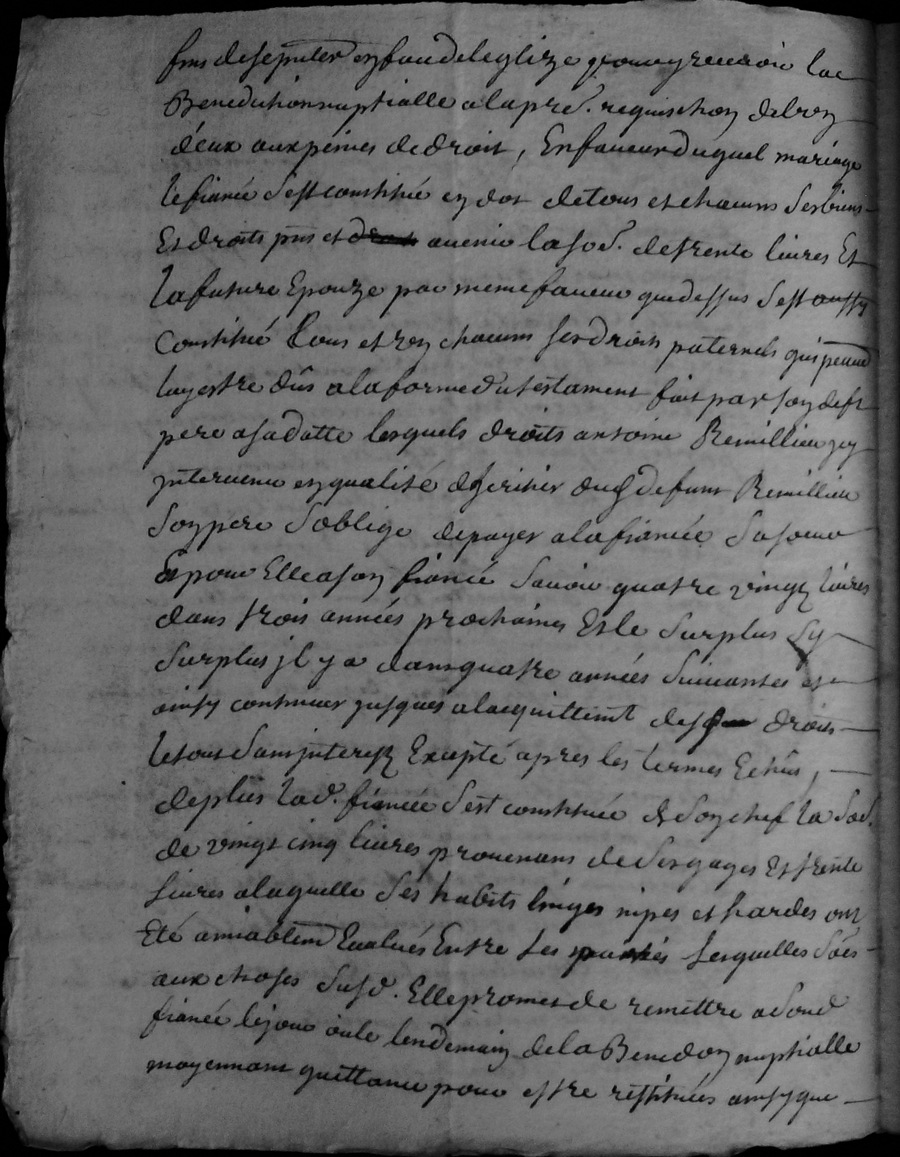 fins de se pnter en face de leglize pour y recevoir la
Benediction nuptialle a la pre. requisition de lun
d'eux aux peines de droit, En faveur duquel mariage
le fiancé s'est constitué en dot de tous et chacuns ses biens
Et droits pns et avenir la sod. de trente livres Et
la future Epouze par meme faveur que dessus s'est aussy
Constitué tous et un chacuns ses droits paternels qui peuvent
luy estre dûs a la forme du testament fait par son deft
pere a sa datte lesquels droits antoine Remillieu icy
intervenu en qualité d'heritier dud defunt Remillieu
son pere s'oblige de payer a la fiancée sa soeur
Et pour Elle a son fiancé savoir quatre vingt livres
dans trois années prochaines Et le surplus sy
surplus jl y a dans quatre années suivantes et
ainsy continuer jusques a lacquittemt desd droits
le tout sans interest Excepté apres les termes Echûs,
de plus lad. fiancée s'est constituée de son chef la sod.
de vingt cinq livres provenans de ses gages Et trente
livres a laquelle ses habits linges nipes et hardes ont
Eté amiablemt Evalués Entre les parties lesquelles sões
aux choses susd. Elle promet de remettre a sond
fiancé le jour ou le lendemain de la Benedon nuptialle
moyennant quittance pour estre restituées ainsy que